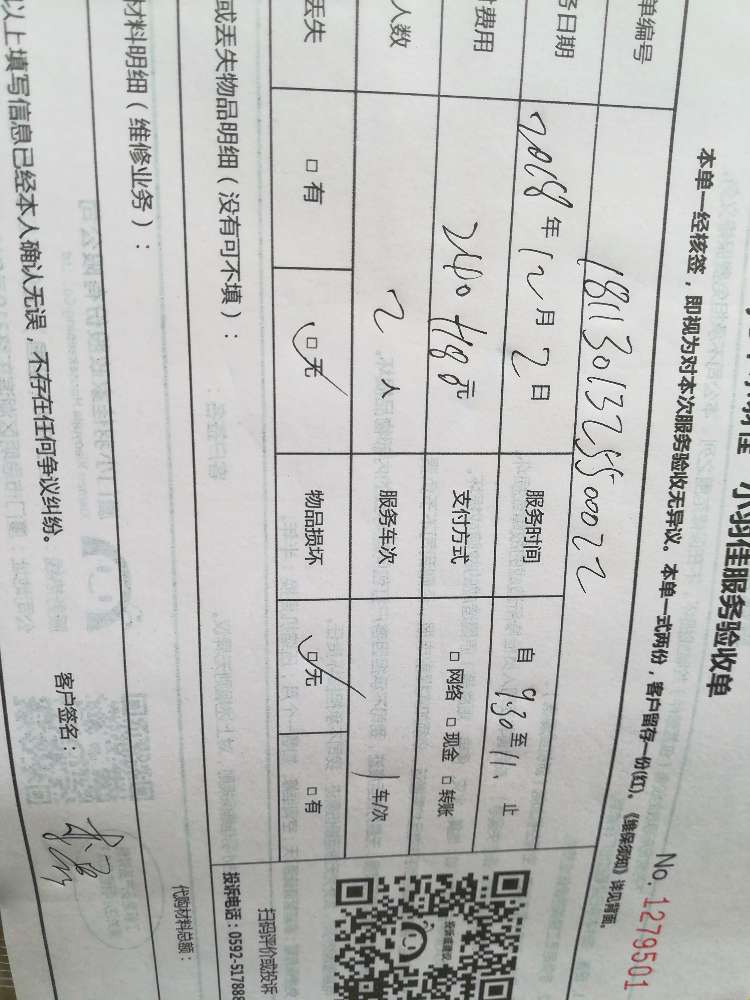 小羽佳服务验收单
本单一经核签，即视为对本次服务验收无异议。本单一式两份，客户留存一份(红)。《维保须知》详见背面。
No. 1279501
单编号 181130132550022
务日期 2018年12月2日 服务时间 自 9:30 至 11. 止
费用 240+180元 支付方式 □网络 □现金 □转账
人数 2人 服务车次 1车/次
丢失 □有 □无 物品损坏 □无 □有
或丢失物品明细（没有可不填）：
扫码评价或投诉
投诉电话：0592-517888
材料明细（维修业务）：
代购材料总额：
以上填写信息已经本人确认无误，不存在任何争议纠纷。
客户签名：